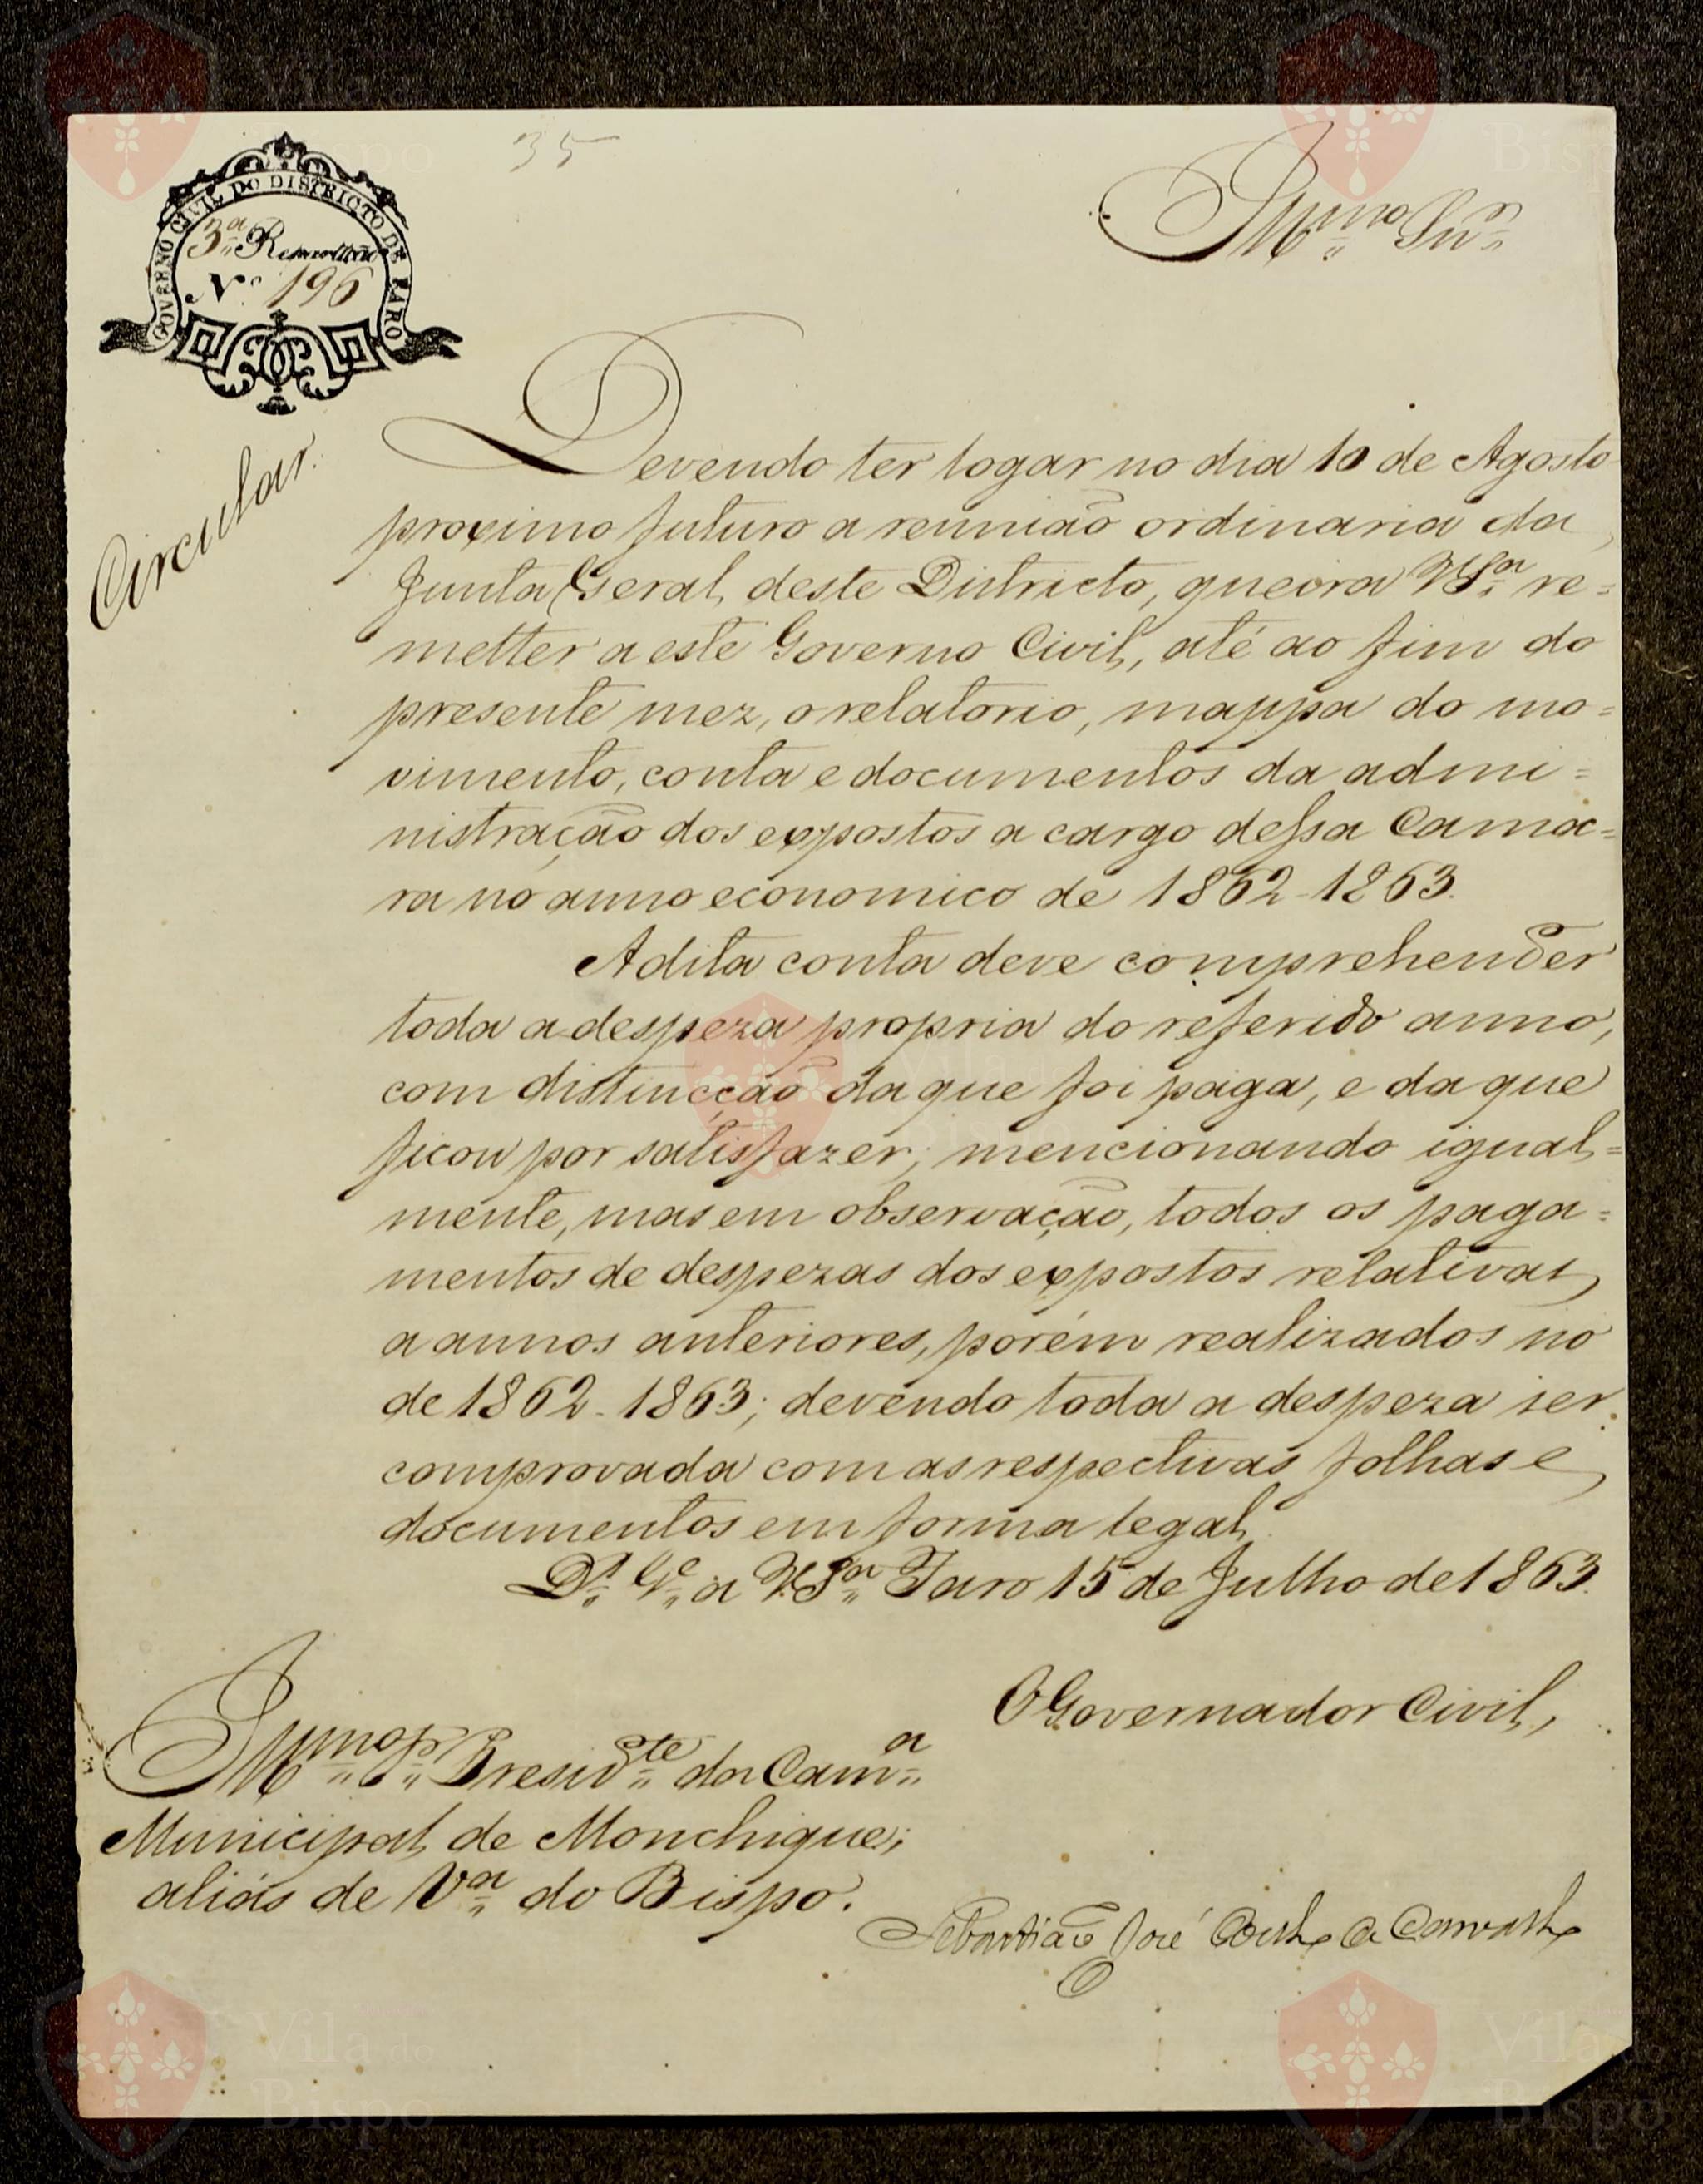 35
GOVERNO CIVIL DO DISTRICTO DE FARO
3.ª Repartição
N.º 196
Illm.º Sñr.
Circular.
Devendo ter logar no dia 10 de Agosto
proximo futuro a reunião ordinaria da
Junta Geral deste Districto, queira V.S.ª re=
metter a este Governo Civil, até ao fim do
presente mez, o relatorio, mappa do mo=
vimento, conta e documentos da admi=
nistração dos expostos a cargo dessa Cama=
ra no anno economico de 1862-1863.
A dita conta deve comprehender
toda a despeza propria do referido anno,
com distincção da que foi paga, e da que
ficou por satisfazer; mencionando igual=
mente, mas em observação, todos os paga=
mentos de despezas dos expostos relativas
a annos anteriores, porém realizados no
de 1862-1863; devendo toda a despeza ser
comprovada com as respectivas folhas e
documentos em forma legal.
D.s G.e a V.S.ª Faro 15 de Julho de 1863.
O Governador Civil,
Illm.º Sr. Presid.te da Cam.ª
Municipal de Monchique;
aliás de V.ª do Bispo.
Sebastião José Coelho de Carvalho
Vila do
Bispo